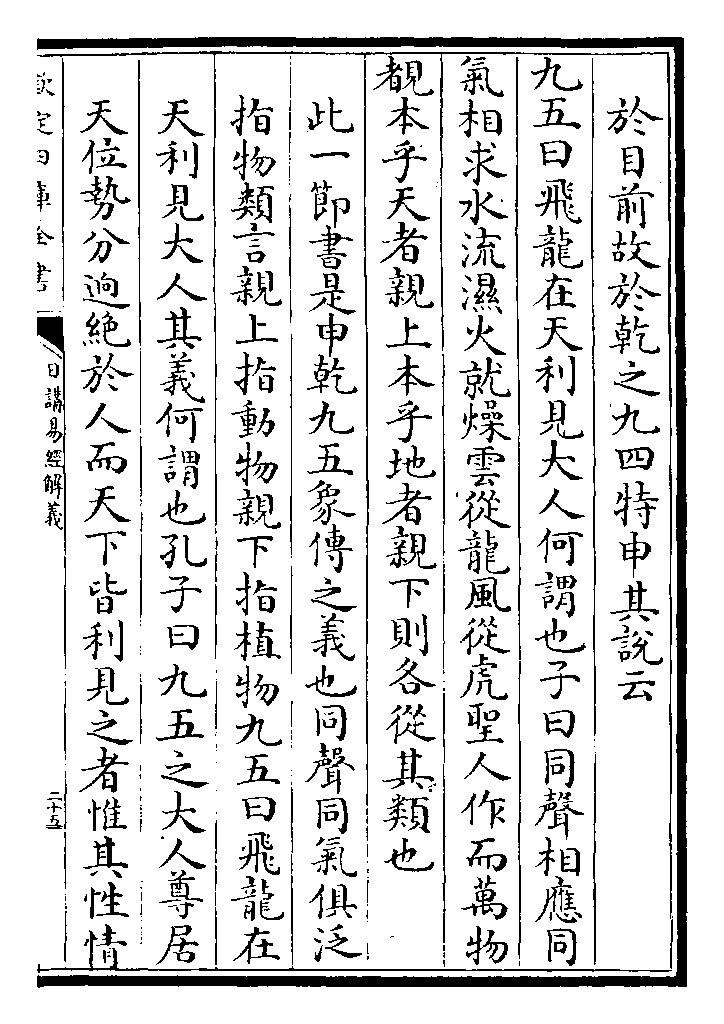 於目前故於乾之九四特申其說云
九五曰飛龍在天利見大人何謂也子曰同聲相應同
氣相求水流濕火就燥雲從龍風從虎聖人作而萬物
覩本乎天者親上本乎地者親下則各從其類也
此一節書是申乾九五象傳之義也同聲同氣俱泛
指物類言親上指動物親下指植物九五曰飛龍在
天利見大人其義何謂也孔子曰九五之大人尊居
天位勢分逈絶於人而天下皆利見之者惟其性情
欽定四庫全書
日講易經解義
二十五